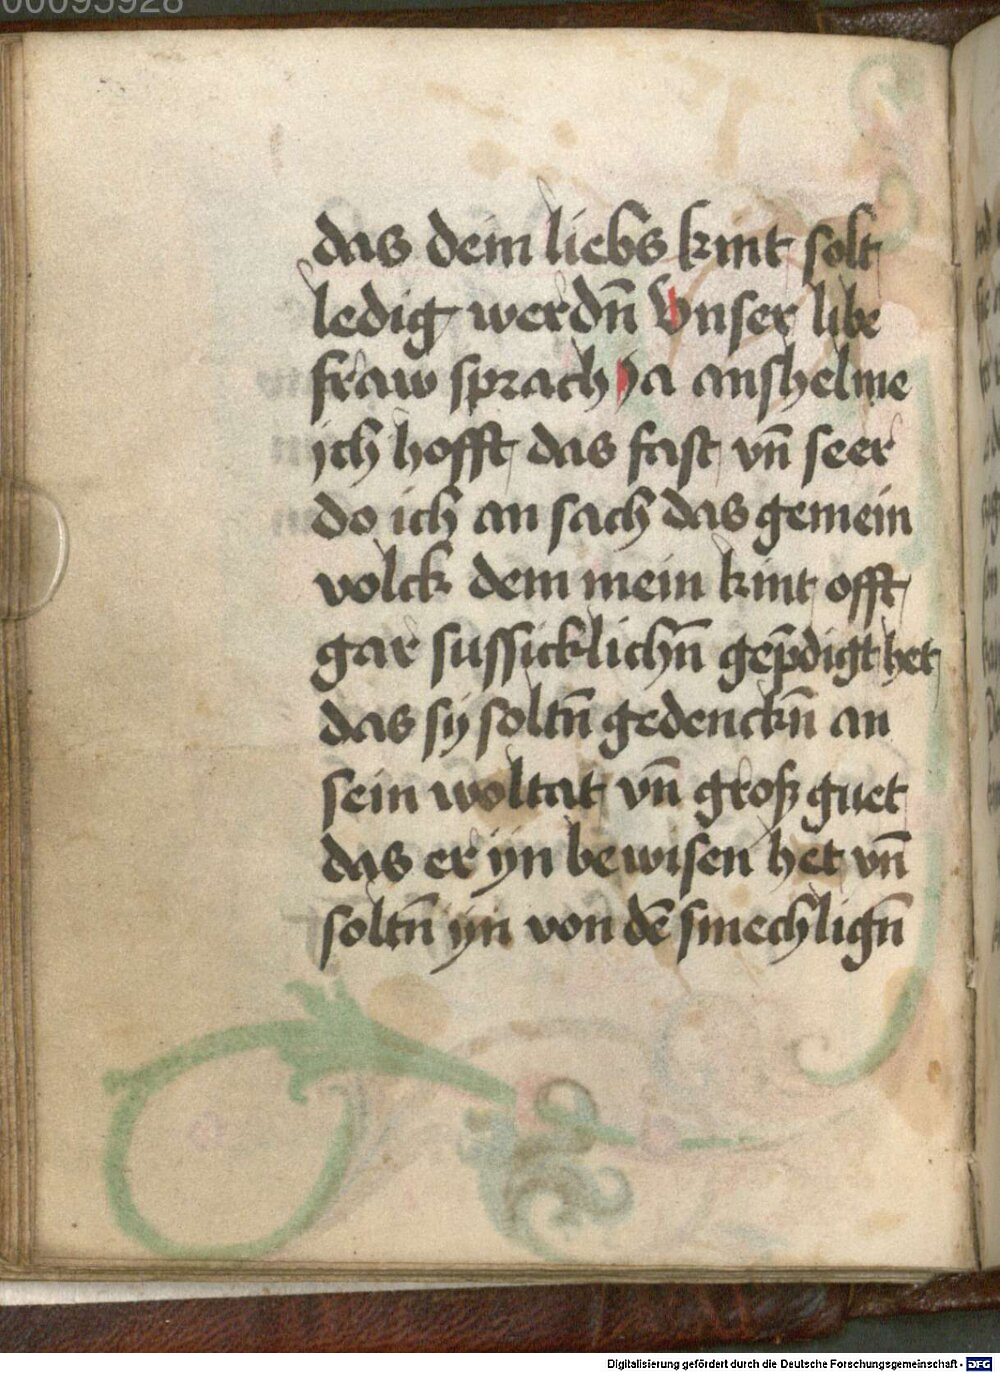 00095928
das dem liebs kint solt
ledig werdn̄ Vnser libe
fraw sprach Ja anshelme
ich hofft das fast vn̄ seer
do ich an sach das gemein
volck dem mein kint offt
gar sussicklichn̄ gep̄digt het
das sÿ soltn̄ gedenckn̄ an
sein woltat vn̄ groß guet
das er ÿn bewisen het vn̄
soltn̄ ÿn von dē smechlign̄
Digitalisierung gefördert durch die Deutsche Forschungsgemeinschaft - DFG